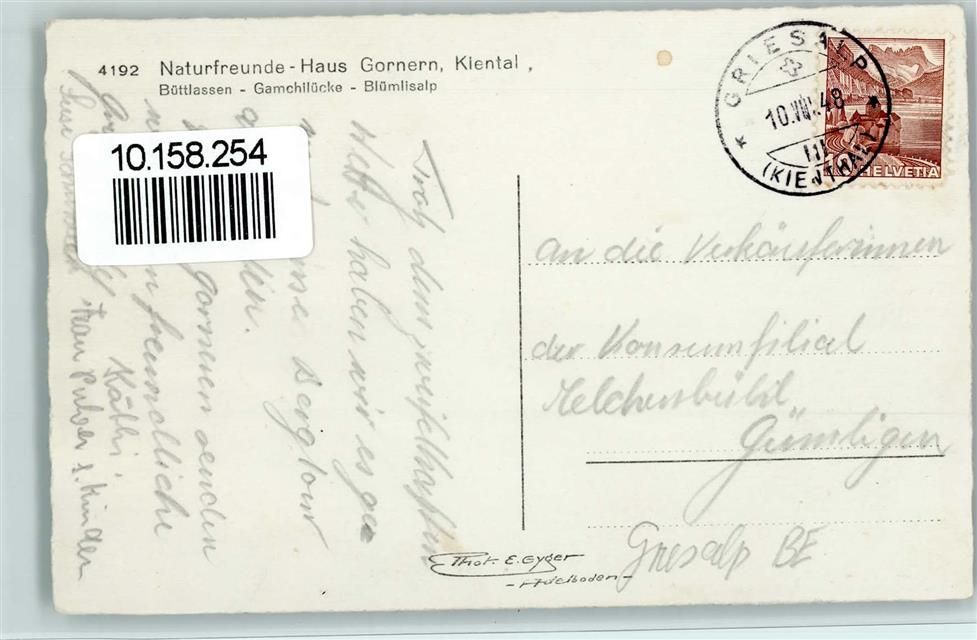 4192 Naturfreunde-Haus Gornern, Kiental,
Büttlassen - Gamchilücke - Blümlisalp
10.158.254
GRIESALP
10.VIII.48
(KIENTHAL)
HELVETIA
Trotz dem zweifelhaften
Wetter haben wir es ge
eine Bergtour
Gornern senden
freundliche
Käthi
Frau Pulver & Kinder
An die Verkäuferinnen
der Konsumfilial
Melchenbühl
Gümligen
Griesalp BE
Phot. E. Gyger
- Adelboden -